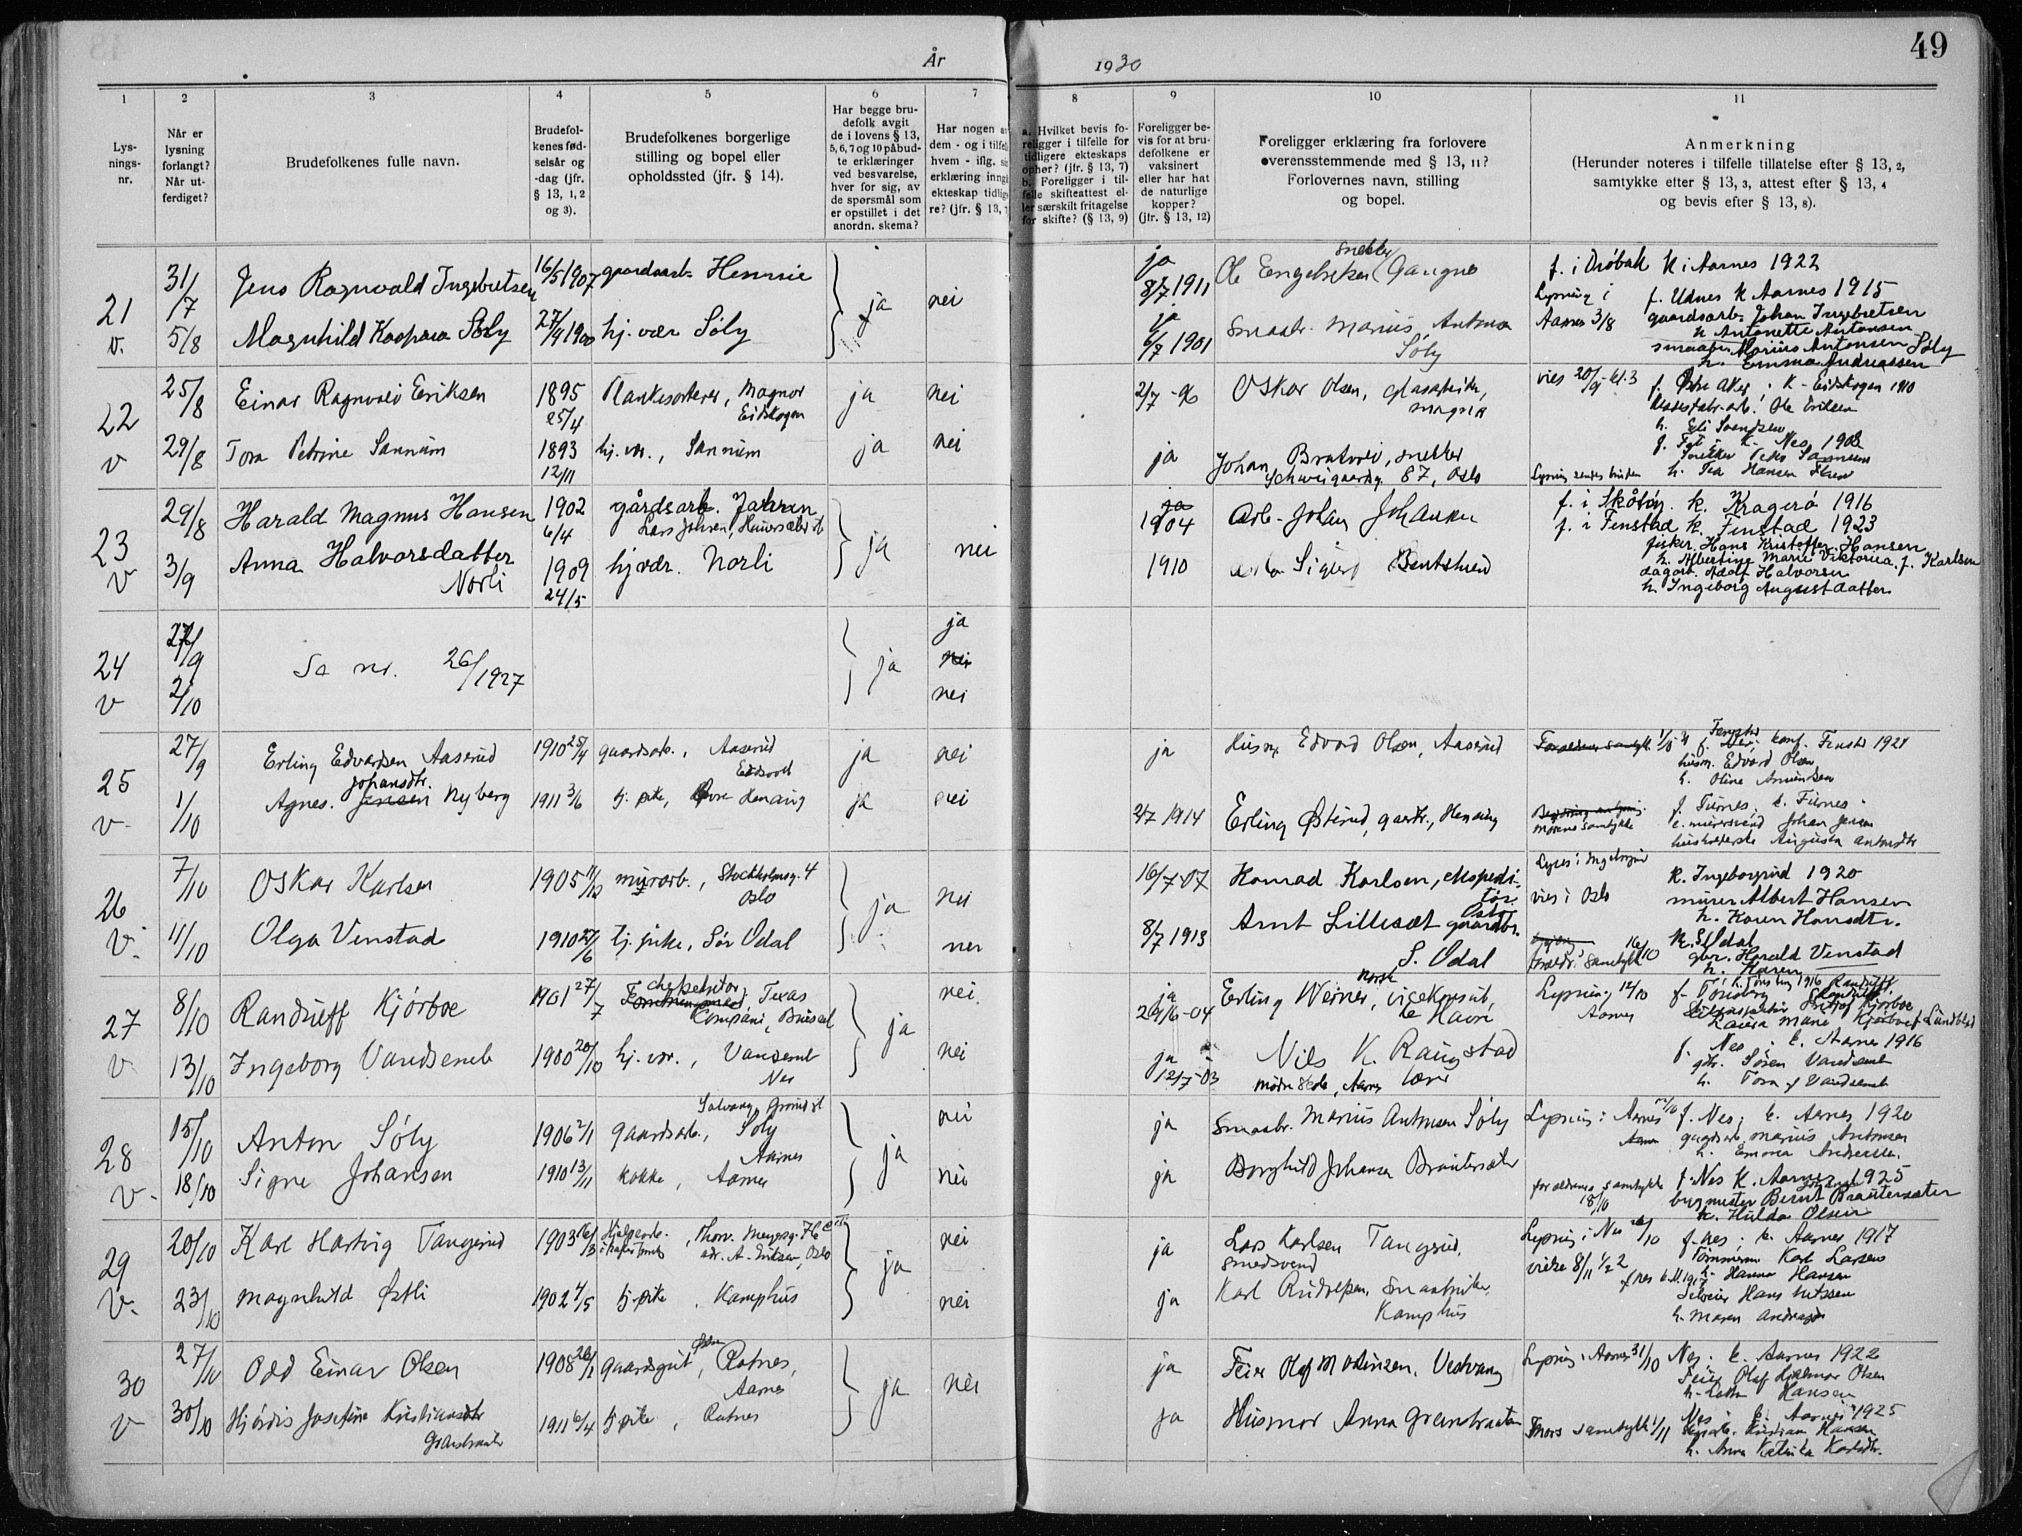 49
År 1930
1 2 3 4 5 6 7 8 9 10 11
Lys-
nings-
nr.
Når er
lysning
forlangt?
Når ut-
ferdiget?
Brudefolkenes fulle navn.
Brudefol-
kenes fød-
selsår og
-dag (jfr.
§ 13, 1, 2
og 3).
Brudefolkenes borgerlige
stilling og bopel eller
opholdssted (jfr. § 14).
Har begge bru-
defolk avgit
de i lovens § 13,
5, 6, 7 og 10 påbud-
te erklæringer
ved besvarelse,
hver for sig, av
de spørsmål som
er opstillet i det
anordn. skema?
Har nogen av
dem - og i tilfelle
hvem - iflg. sin
erklæring inngått
ekteskap tidlige-
re? (jfr. § 13, 7
a. Hvilket bevis fo-
religger i tilfelle for
tidligere ekteskaps
ophør? (jfr. § 13, 7)
b. Foreligger i til-
felle skifteattest el-
ler særskilt fritagelse
for skifte? (§ 13, 9)
Foreligger be-
vis for at bru-
defolkene er
vaksinert
eller har hat
de naturlige
kopper?
(jfr. § 13, 12)
Foreligger erklæring fra forlovere
overensstemmende med § 13, 11?
Forlovernes navn, stilling
og bopel.
Anmerkning
(Herunder noteres i tilfelle tillatelse efter § 13, 2,
samtykke efter § 13, 3, attest efter § 13, 4
og bevis efter § 13, 8).
21 v.
31/7 Jens Ragnvald Ingebretsen 16/5 1907 gaardsarb. Hennie ja nei ja 8/7 1911 Ole Engebretsen snekker Gaugne f. i Drøbak K i Aarnes 1922
5/8 Magnhild Kaspara Søly 27/4 1900 hj. vær Søly ja 6/7 1901 Smaabr. Marius Antonsen Søly Lysning i Aarnes 3/8 f. Udnes K Aarnes 1915
gaardsarb. Johan Ingebretsen
h. Antonette Antonsen
smaabr. Marius Antonsen Søly
h. Emma Andreassen
22 v
25/8 Einar Ragnvald Eriksen 1895 25/4 Plankesorterer, Magnor Eidskogen ja nei 2/7 -96 Oskar Olsen, Magnor vies 20/9 kl. 3 f. Østre Aker. K - Eidskogen 1910
Ole Eriksen
h. Eli Svendsen
29/8 Tora Petrine Sannum 1893 12/11 hj. vr., Sannum ja nei ja Johan Bratveid, snekker Schweigaardsg. 87, Oslo Lysning sendes bruden K. Nes 1908
h. Tea Hansen
23 v
29/8 Harald Magnus Hansen 1902 6/4 gårdsarb. Jahren Lars Jahren, ja nei ja 1904 Arb. Johan Johansen f. i Skåtøy. k. Kragerø 1916
3/9 Anna Halvorsdatter Norli 1909 24/5 hj. vær. Norli 1910 Sigurd f. i Fenstad k. Fenstad 1923
fisker Hans Kristoffer Hansen
h. Albertine Marie Viktoria f. Karlsen
dagarb. Adolf Halvorsen
h. Ingeborg Augustdatter
24 v
27/9 Se nr. 26/1927 ja ja nei
2/10 nei
25 v.
27/9 Erling Edvardsen Aaserud 1910 25/4 gaardsarb., Aaserud Eidsvoll ja nei ja Husm. Edvard Olsen, Aaserud Fenstad f. Nes; konf. Fenstad 1924
husm. Edvard Olsen
h. Oline
1/10 Agnes Jensen Johansdtr. Nyberg 1911 3/6 tj. pike, Øvre Henning ja nei 2/7 1914 Erling Østerud, gaardbr., Henning Morens samtykke f. Furnes. k. Furnes
murersvend Johan Jensen
husholderske Augusta
26 v.
7/10 Oskar Karlsen 1905 11/12 murarb., Stockholmsg. 4 Oslo ja nei 16/7-07 Konrad Karlsen, ekspeditør Oslo vies i Oslo K. Ingeborgrud 1920
murer Albert Hansen
h. Karen Hansdtr.
11/10 Olga Venstad 1910 27/6 tj. pike, Sør Odal nei 8/7 1913 Arnt Lillesæt gaardbr. S. Odal foreldr. samtykk 16/10 K. S. Odal
gbr. Harald Venstad
h. Karen
27 v
8/10 Randulff Kjørboe 1901 27/7 Texas Compani, Brüssel ja nei ja 26/6-04 Erling Werner, norsk visekonsul, le Havre Lysning Aarnes 12/10 f. Tønsberg k. Tønsberg 1916
Laura Marie Kjørboe f. Lundblad
13/10 Ingeborg Vandsemb 1900 20/10 hj. vr., Vansemb Nes nei ja 12/7-03 Nils K. Raugstad lærer Aarnes f. Nes; k. Aarnes 1916
gbr. Søren Vandsemb
h. Tora f. Vandsemb
28 v.
15/10 Anton Søly 1906 2/1 gaardsarb., Søly Aarnes ja nei ja Smaabr. Marius Antonsen Søly Lysning i Aarnes f. Nes; k. Aarnes 1920
gaardsarb. Marius Antonsen
h. Emma Andreassen
18/10 Signe Johansen 1910 13/11 kokke, Aarnes nei ja Borghild Johansen Brautersæter foreldrenes samtykke 18/10 f. Nes K. Aarnes 1925
bygmester Bernt Johansen Brautersæter
h. Hulda Olsen
29 v.
20/10 Karl Hartvig Tangerud 1903 16/3 Hjelpearb., Thorv. Meyersg. 76 adr. A. Eriksen, Oslo ja nei ja Lars Karlsen Tangerud, smedsvend Lysning i Nes 26/10 vielse 8/11 f. Nes; k. Aarnes 1917
Tømmerm. Karl Larsen
h. Hanna Hansen
23/10 Magnhild Østli 1902 4/5 tj. pike, Kamphus nei ja Karl Kamphus f. Nes k. 1917
Selveier Hans Nilssen
h. Maren
30 v
27/10 Odd Einar Olsen 1908 26/1 gaardsgut, Østre Rotnes, Aarnes ja nei ja Feier Olaf Martinsen, Vestvang Lysning i Aarnes 31/10 Nes. k. Aarnes 1922
Feier Olaf Hjalmar Olsen
h. Hansen
30/10 Hjørdis Josefine Kristiansdtr Granstraaten 1911 6/4 tj. pike, Rotnes ja Husmor Anna Granstraaten Mors samtykk 1/11 Nes k. Aarnes 1925
Kristian Hansen
h. Anna Katinka Karlsdtr.